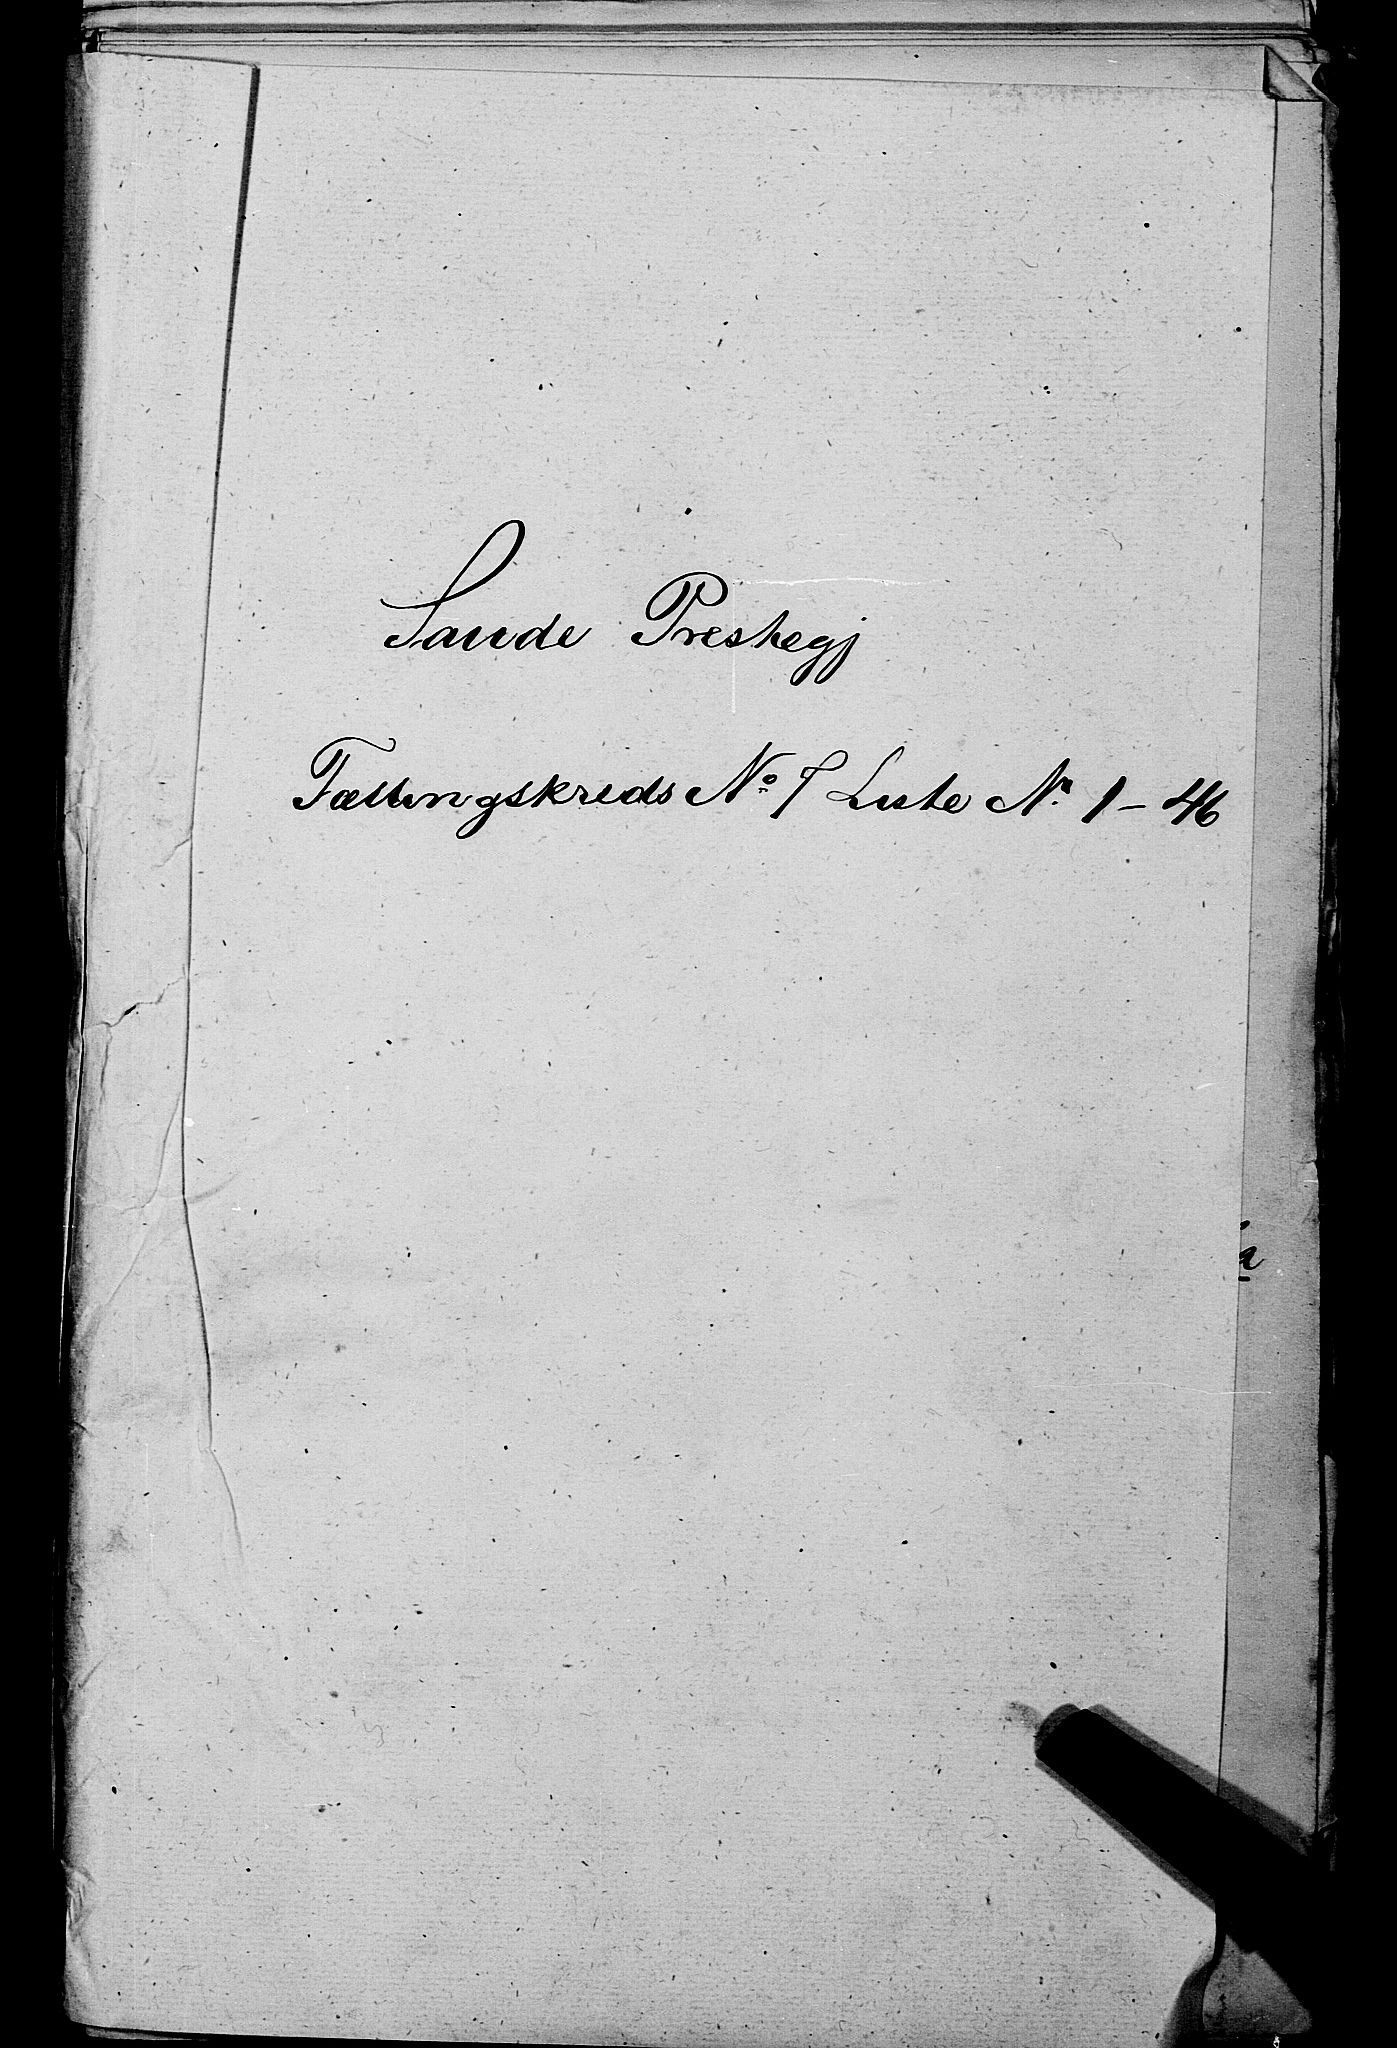 Saude Prestegj
Tællingskreds No 7 Liste Nr. 1 – 46